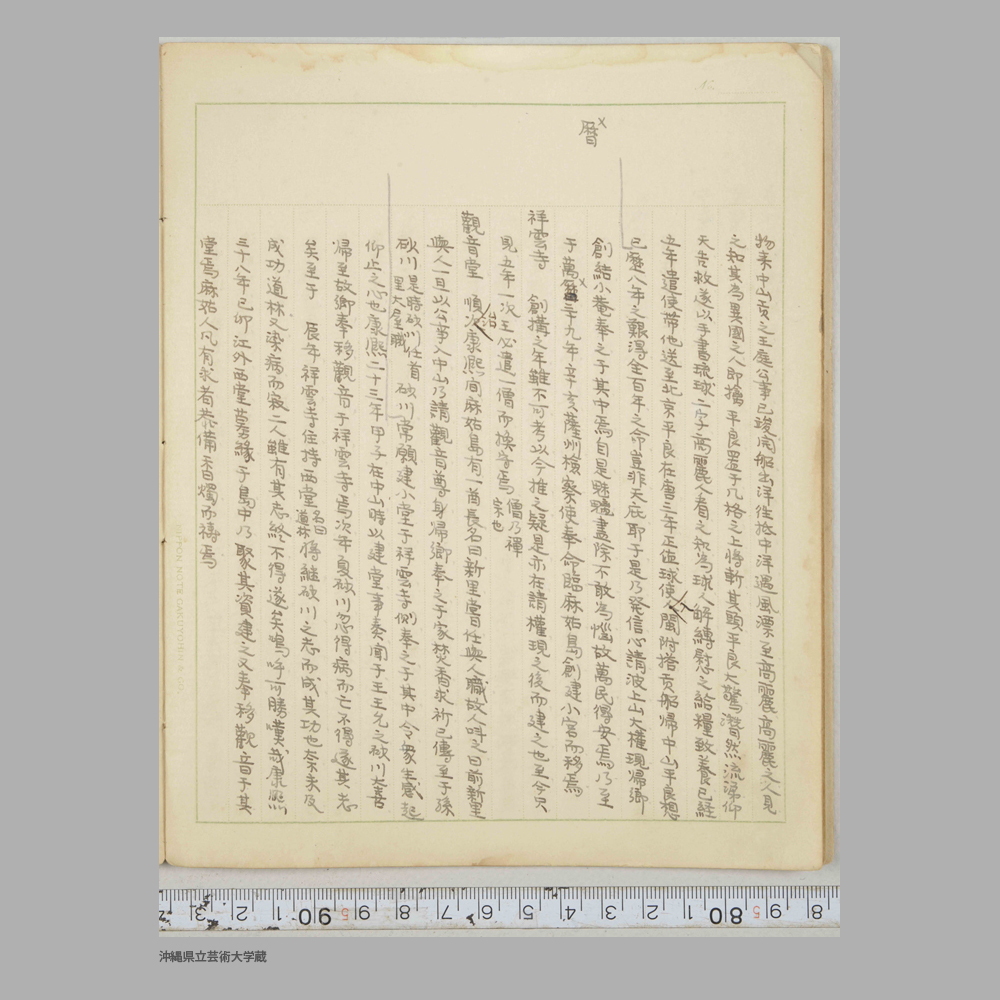 暦×
物来中山貢之王庭公事已竣開船出洋徃抵中洋遇風漂至高麗高麗之人見
之知其為異國之人即擒平良置于几格之上將斬其頭平良大驚潸然流涕仰
天告救遂以手書琉球二字高麗人看之知為球人解縛慰之給糧致養已経
五年遣使帯他送至北京平良在唐三年正値球使入閩附搭貢船帰中山平良想
已歴八年之艱得全百年之命豈非天庇耶于是乃発信心請波上山大權現帰郷
創結小菴奉之于其中焉自是魑魅盡除不敢為惱故萬民得安焉乃至
于萬暦三十九年辛亥薩州検察使奉命臨麻姑島創建小宮而移焉
祥雲寺 創搆之年雖不可考以今推之疑是亦在請權現之後而建之也至今只
見五年一次王必遣一僧而換李焉 僧乃禪宗也
觀音堂 順治康熙間麻姑島有一酋長名曰新里嘗任與人職故人呼之曰前新里
與人一旦以公事入中山乃請觀音尊身帰郷奉之于家焚香求祈已傳至于孫
砂川是時砂川任首里大屋職 砂川常願建小堂于祥雲寺側奉之于其中令衆生感起
仰止之心也康熙二十三年甲子在中山時以建堂事奏聞于王王允之砂川大喜
帰至故郷奉移觀音于祥雲寺焉次年夏砂川忽得病而亡不得遂其志
矣至于 辰年祥雲寺住持西堂名曰道林將継砂川之志而成其功也奈未及
成功道林又染病而寂二人雖有其志終不得遂矣嗚呼可勝嘆哉康熙
三十八年己卯江外西堂募縁于島中乃聚其資建之又奉移觀音于其
堂焉麻姑人凡有求者恭備香燭而禱焉
NIPPON NOTE
3 2 1 90 9 8 7 6 5 4 3 2 1 80 9 8
沖縄県立芸術大学蔵